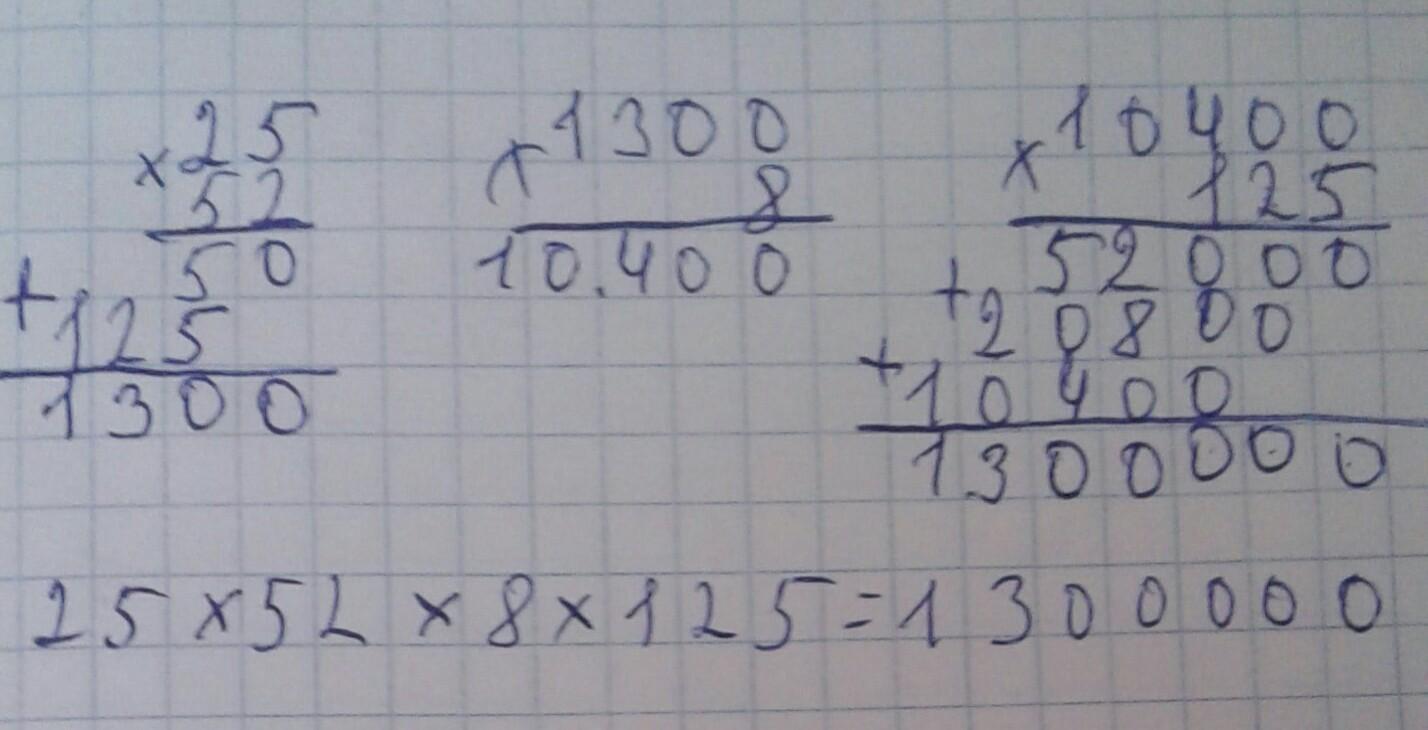 × 25
52
50
+ 125
1300
× 1300
8
10.400
× 10400
125
52000
+ 20800
+ 10400
1300000
25 × 52 × 8 × 125 = 1300000